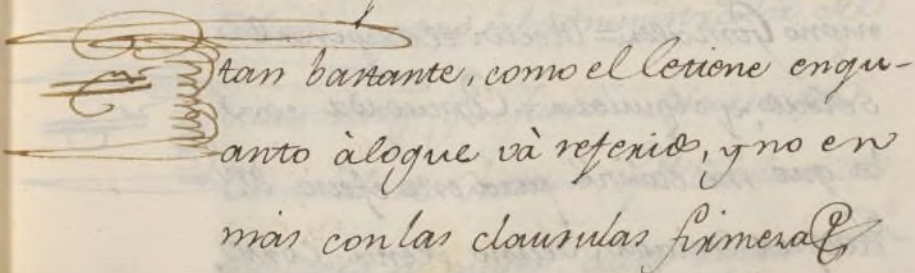 tan bastante, como el letiene enqu-
anto àloque và referido, y no en
mas con las clausulas firmeza